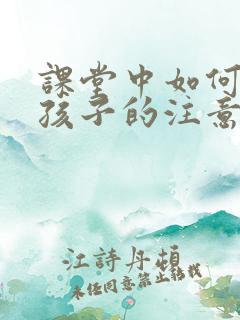 課堂中如何
孩子的注意
江詩丹頓
未经同意禁止转载